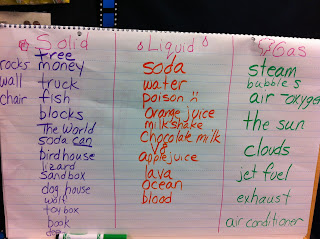 Solid
tree
rocks money
wall truck
chair fish
blocks
The World
soda can
birdhouse
lizard
sandbox
dog house
wolf
toy box
book
Liquid
soda
water
poison
orange juice
milkshake
chocolate milk
V8
apple juice
lava
ocean
blood
Gas
steam
bubbles
air - oxygen
the sun
clouds
jet fuel
exhaust
air conditioner